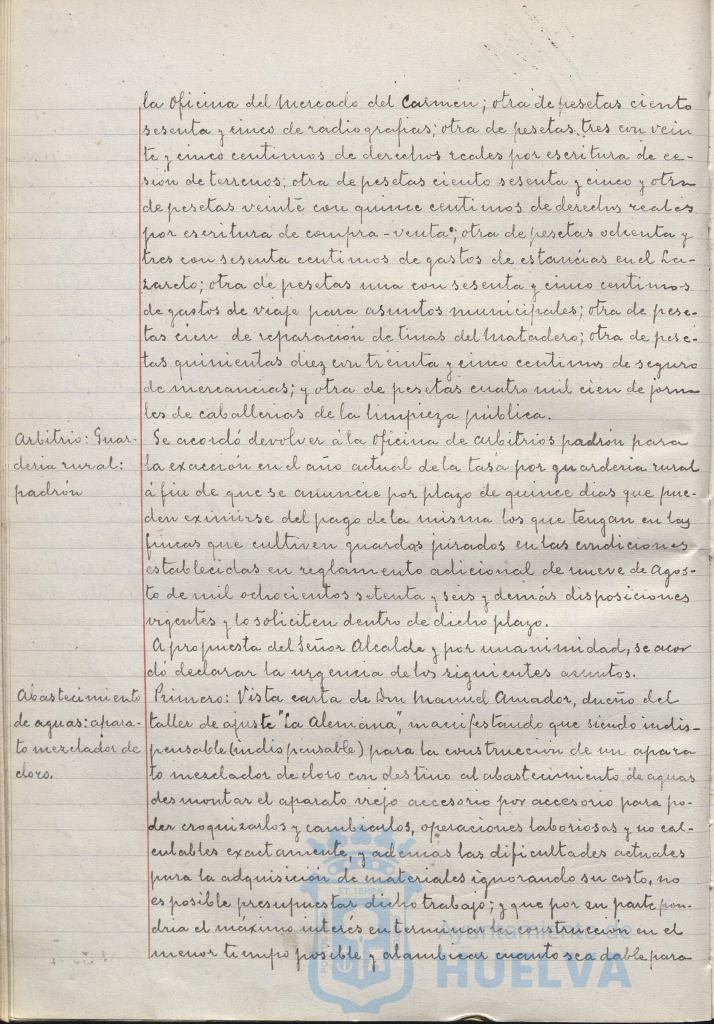 la Oficina del Mercado del Carmen; otra de pesetas ciento
sesenta y cinco de radiografias; otra de pesetas tres con vein
te y cinco centimos de derechos reales por escritura de ce-
sión de terrenos; otra de pesetas ciento sesenta y cinco y otra
de pesetas veinte con quince centimos de derechos reales
por escritura de compra-venta; otra de pesetas ochenta y
tres con sesenta centimos de gastos de estancias en el La-
zareto; otra de pesetas una con sesenta y cinco centimos
de gastos de viaje para asuntos municipales; otra de pese-
tas cien de reparación de tinas del Matadero; otra de pese-
tas quinientas diez con treinta y cinco centimos de seguro
de mercancias; y otra de pesetas cuatro mil cien de jorna-
les de caballerias de la limpieza pública.
Arbitrio: Guar-
deria rural:
padrón
Se acordó devolver á la Oficina de Arbitrios padrón para
la exacción en el año actual de la tasa por guarderia rural
á fin de que se anuncie por plazo de quince dias que pue-
den eximirse del pago de la misma los que tengan en las
fincas que cultiven guardas jurados en las condiciones
establecidas en reglamento adicional de nueve de Agos-
to de mil ochocientos setenta y seis y demás disposiciones
vigentes y lo soliciten dentro de dicho plazo.
A propuesta del Señor Alcalde y por unanimidad, se acor
dó declarar la urgencia de los siguientes asuntos.
Abastecimiento
de aguas: apara-
to mezclador de
cloro.
Primero: Vista carta de Don Manuel Amador, dueño del
taller de ajuste "La Alemana", manifestando que siendo indis-
pensable (indispensable) para la construcción de un apara
to mezclador de cloro con destino al abastecimiento de aguas
desmontar el aparato viejo accesorio por accesorio para po-
der croquizarlos y cambiarlos, operaciones laboriosas y no cal-
culables exactamente, y además las dificultades actuales
para la adquisición de materiales ignorando su costo, no
es posible presupuestar dicho trabajo; y que por su parte pon-
dria el máximo interés en terminar la construcción en el
menor tiempo posible y alambicar cuanto sea dable para
Ayuntamiento de
HUELVA